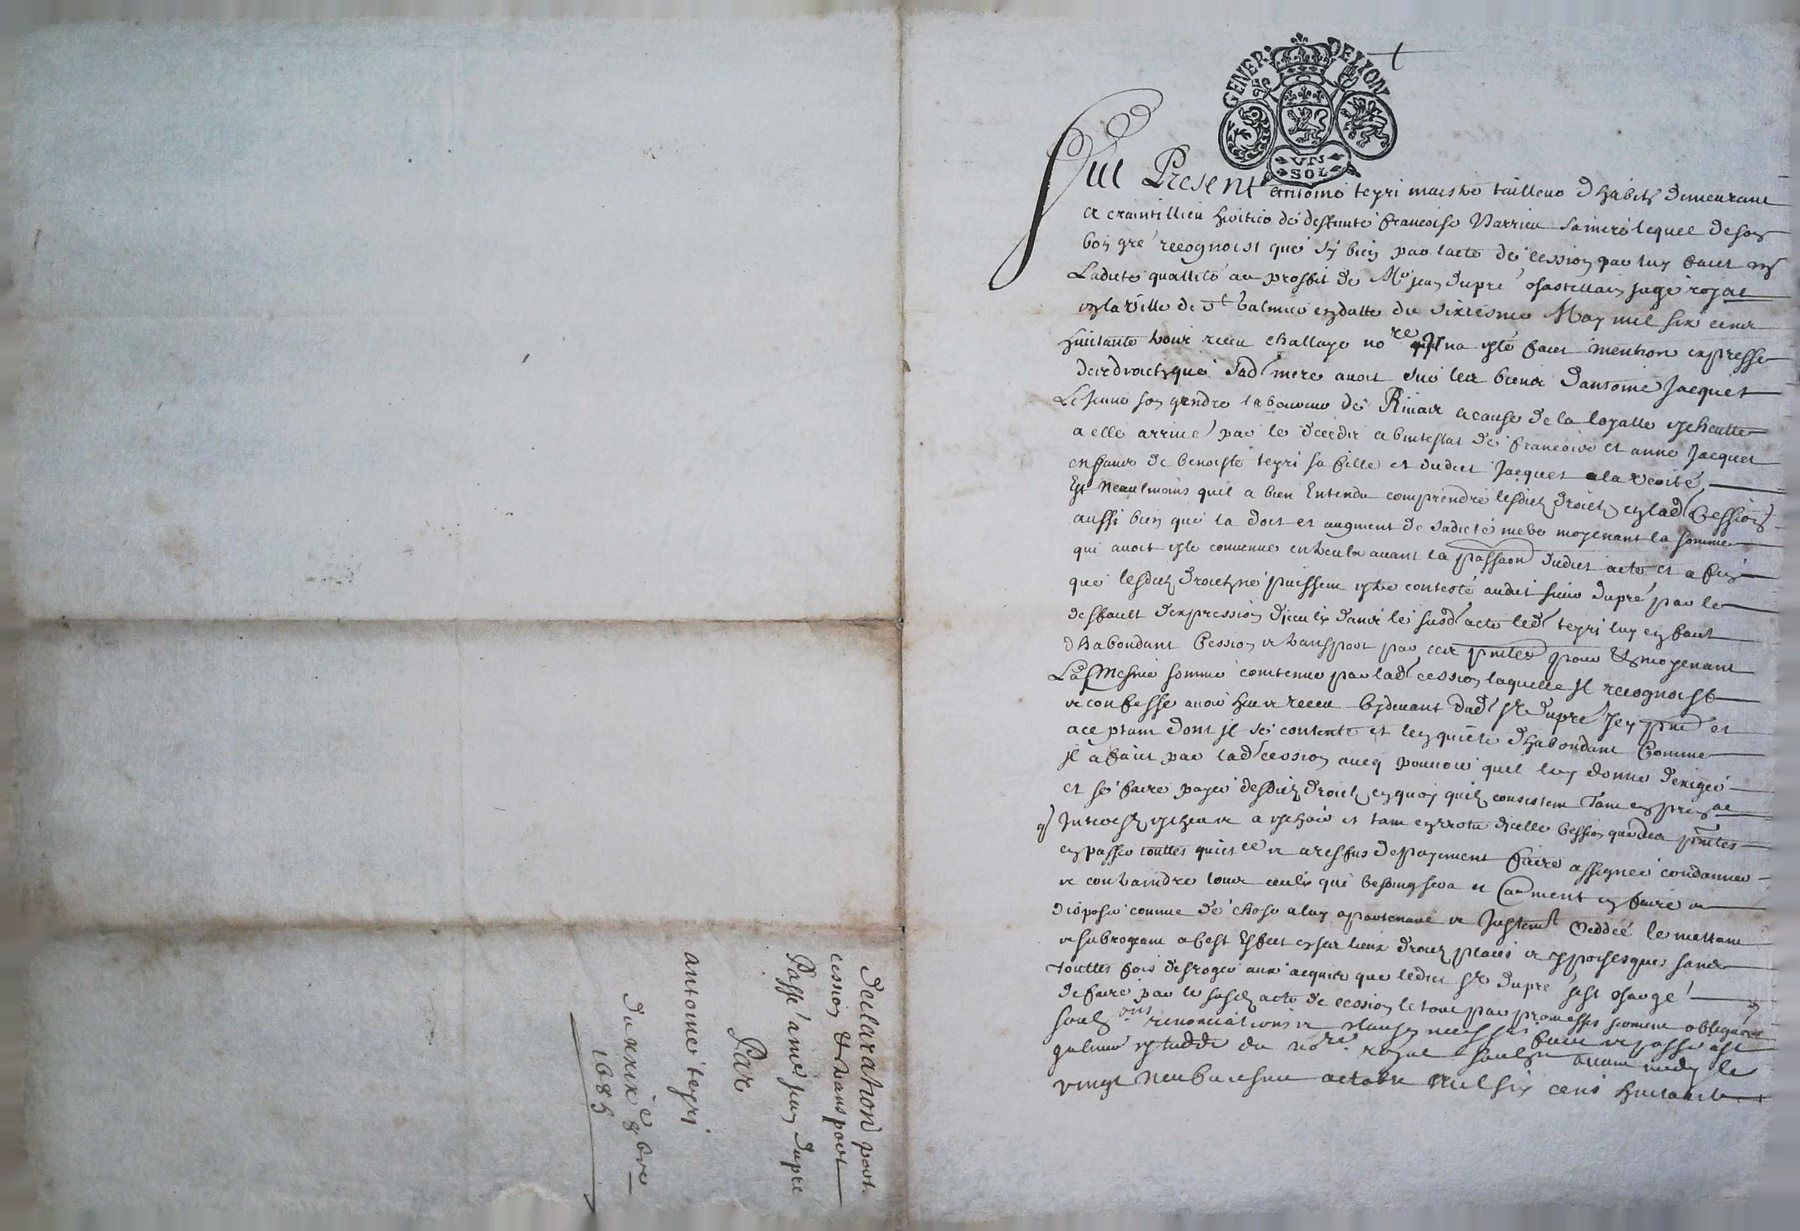 GENER. DE LION
UN
SOL
Fut Present Antoine teyri maistre tailleur d'habits demeurant
a craintillieu heritier de deffunte francoise Varrieu sa mere lequel de son
bon gré recognoist que sy bien par lacte de cession par luy faict en
Ladicte quallité au proffit de Mr jean dupré chastellain juge royal
en la ville de St Galmier en datte du sixiesme May mil six cens
huictante receu challaye nore na esté faict mention expresse
des droicts que sad mere avoit sur les biens dantoine Jacquet
Le jeune son gendre laboureur de Rivas a cause de la loyalle escheutte
a elle arrivé par le decedz abintestat de francoise et anne Jacquet
enfans de benoiste teyri sa fille et dudict Jacquet a la verité
Est Neaulmoins quil a bien Entendu comprendre lesdicts droicts en lad Cession
aussi bien que la dot et augment de sadicte mere moyenant la somme
qui avoit esté convenue entreulx avant la passaon dudict acte et a fin
que lesdicts droicts ne puissent estre contesté audict sieur dupré par le
deffault dexpression diceulx dans le susd acte led teyri luy en faict
dhabondant Cession et transport par ces pntes pour et moyenant
La Mesme somme contenue par lad cession laquelle Il recognoist
et confesse avoir heu et receu cydevant dud sr dupré Icy pnt et
aceptant dont il se contente et len quicte dhabondant Comme
il a faict par lad cession avec pouvoir quel luy donne dexiger
et se faire payer desdicts droicts en quoy quilz consistent Tant en prin al
Interestz escheus et a eschoir et tant en vertu dicelle cession que des pntes
en passer touttes quictces et a reffus de payement faire assigner condamner
et contraindre tous ceulx que besoing sera et faire et
disposer comme de chose a luy apartenant et Justemt le mettant
et subrogeant a cest effect en ses lieux droicts places et ypotesques sans
touttes fois desroger aux acquis que ledict sr dupré sest chargé
de faire par le susd acte de cession le tout par promesses serment obligaons
soubz ons renonciations et clauses necessres faict et passé a St
galmier estudde du nore royal soubzné avant midy le
vingt neufviesme octobre Mil six cens huictante
declaration port.
cession & transport
Passé a mre jean dupré
Par
antoine teyri
du xxixe 8bre
1685